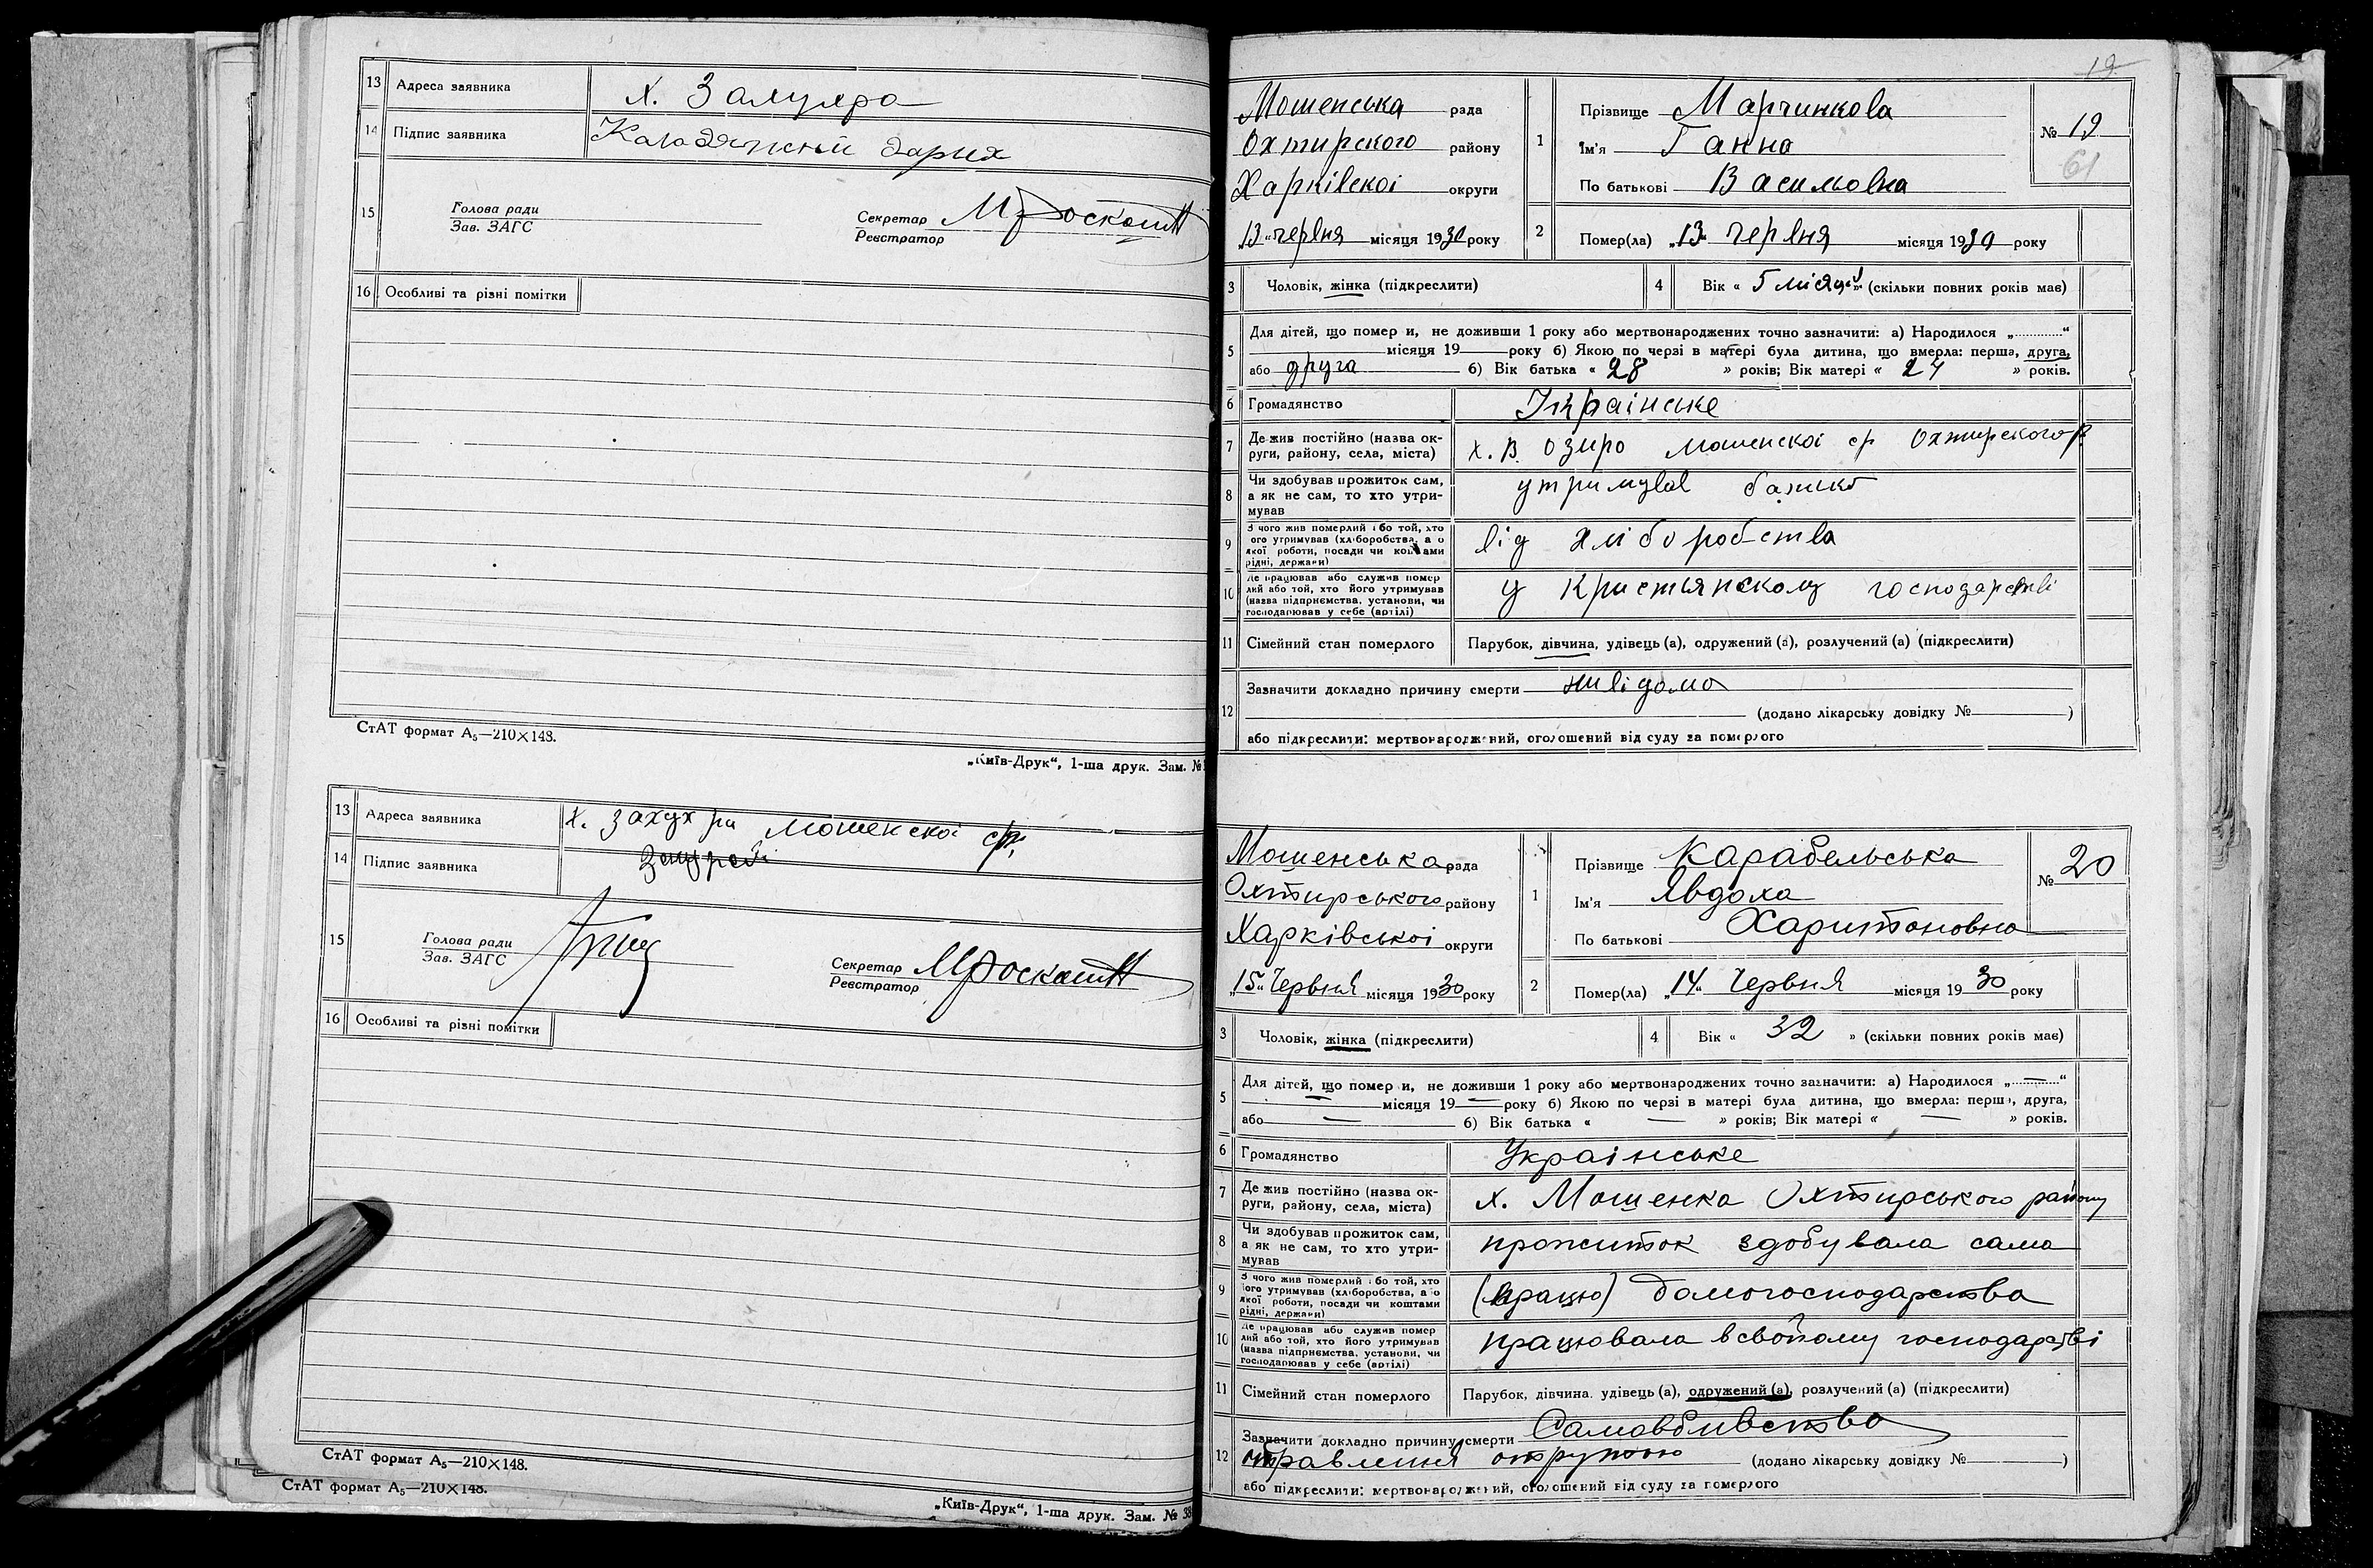 13 Адреса заявника х. Залужра
14 Підпис заявника Коладяжний Дария
15 Голова ради
Зав. ЗАГС
Секретар
Реєстратор
16 Особливі та різні помітки
СтАТ формат А₅—210×148.
„Київ-Друк“, 1-ша друк. Зам. №
13 Адреса заявника х. мошенскоі ср.
14 Підпис заявника
15 Голова ради
Зав. ЗАГС
Секретар
Реєстратор
16 Особливі та різні помітки
СтАТ формат А₅—210×148.
СтАТ формат А₅—210×148.
„Київ-Друк“, 1-ша друк. Зам. № 38
19
Мошенська рада
Охтирского району
Харківскоі округи
„13“ червня місяця 1930 року
1 Прізвище Марчинкова
Ім'я Ганна
По батькові Васильовна
№ 19
61
2 Помер(ла) „13“ червня місяця 1930 року
3 Чоловік, жінка (підкреслити)
4 Вік « 5 місяців » (скільки повних років має)
5 Для дітей, що помер и, не доживши 1 року або мертвонароджених точно зазначити: а) Народилося „............“
місяця 19 року б) Якою по черзі в матері була дитина, що вмерла: перша, друга,
або друга б) Вік батька « 28 » років; Вік матері « 24 » років.
6 Громадянство Українське
7 Де жив постійно (назва ок-
руги, району, села, міста) х. В. озиро мошенскоі ср Охтирского р.
8 Чи здобував прожиток сам,
а як не сам, то хто утри-
мував утримував батько
9 З чого жив померлий або той, хто
ого утримував (хліборобства, а о
якої роботи, посади чи коштами
рідні, держави) від хліборобства
10 Де працював або служив помер
лий або той, хто його утримував
(назва підприємства, установи, чи
господарював у себе (артілі) у кристьянскому господарстві
11 Сімейний стан померлого Парубок, дівчина, удівець (а), одружений (а), розлучений (а) (підкреслити)
12 Зазначити докладно причину смерти нивідома
(додано лікарську довідку № )
або підкреслити: мертвонароджений, оголошений від суду за померлого
Мошенська рада
Охтирського району
Харківськоі округи
„15“ Червня місяця 1930 року
1 Прізвище Карабельська
Ім'я Явдоха
По батькові Харитоновна
№ 20
2 Помер(ла) „14“ Червня місяця 1930 року
3 Чоловік, жінка (підкреслити)
4 Вік « 32 » (скільки повних років має)
5 Для дітей, що помер и, не доживши 1 року або мертвонароджених точно зазначити: а) Народилося „—“
— місяця 19 — року б) Якою по черзі в матері була дитина, що вмерла: перша, друга,
або — б) Вік батька « — » років; Вік матері « — » років.
6 Громадянство Українське
7 Де жив постійно (назва ок-
руги, району, села, міста) х. Мошенка Охтирського району
8 Чи здобував прожиток сам,
а як не сам, то хто утри-
мував прожиток здобувала сама
9 З чого жив померлий або той, хто
його утримував (хліборобства, а о
якої роботи, посади чи коштами
рідні, держави) (працю) домогосподарства
10 Де працював або служив помер
лий або той, хто його утримував
(назва підприємства, установи, чи
господарював у себе (артілі) працювала в свойому господарстві
11 Сімейний стан померлого Парубок, дівчина, удівець (а), одружений (а), розлучений (а) (підкреслити)
12 Зазначити докладно причину смерти Самовбивство
отравления отрутою (додано лікарську довідку № )
або підкреслити: мертвонароджений, оголошений від суду за померлого